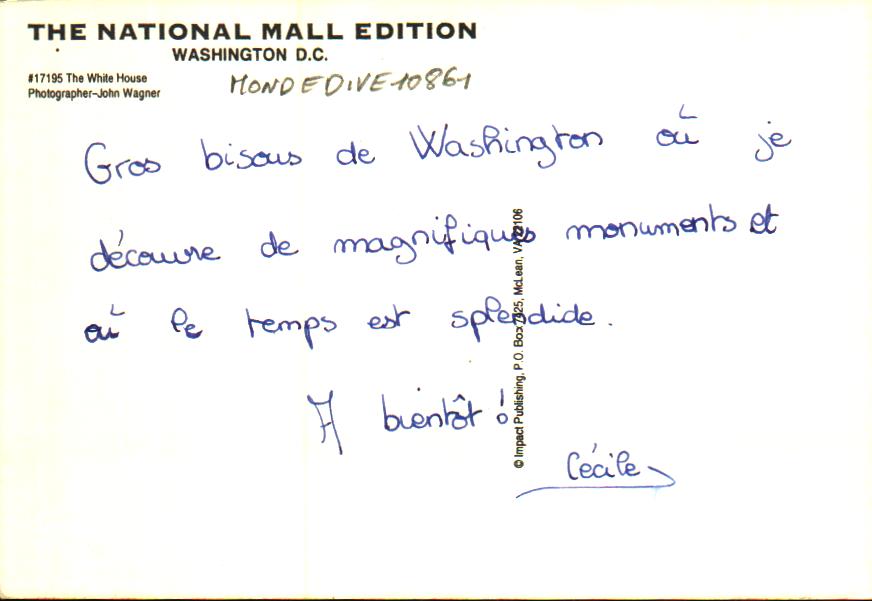 THE NATIONAL MALL EDITION
WASHINGTON D.C.
#17195 The White House
Photographer-John Wagner
MONDEDIVE10861
Gros bisous de Washington où je
découvre de magnifiques monuments et
où le temps est splendide.
A bientôt !
Cécile
© Impact Publishing, P.O. Box 7425, McLean, VA 22106